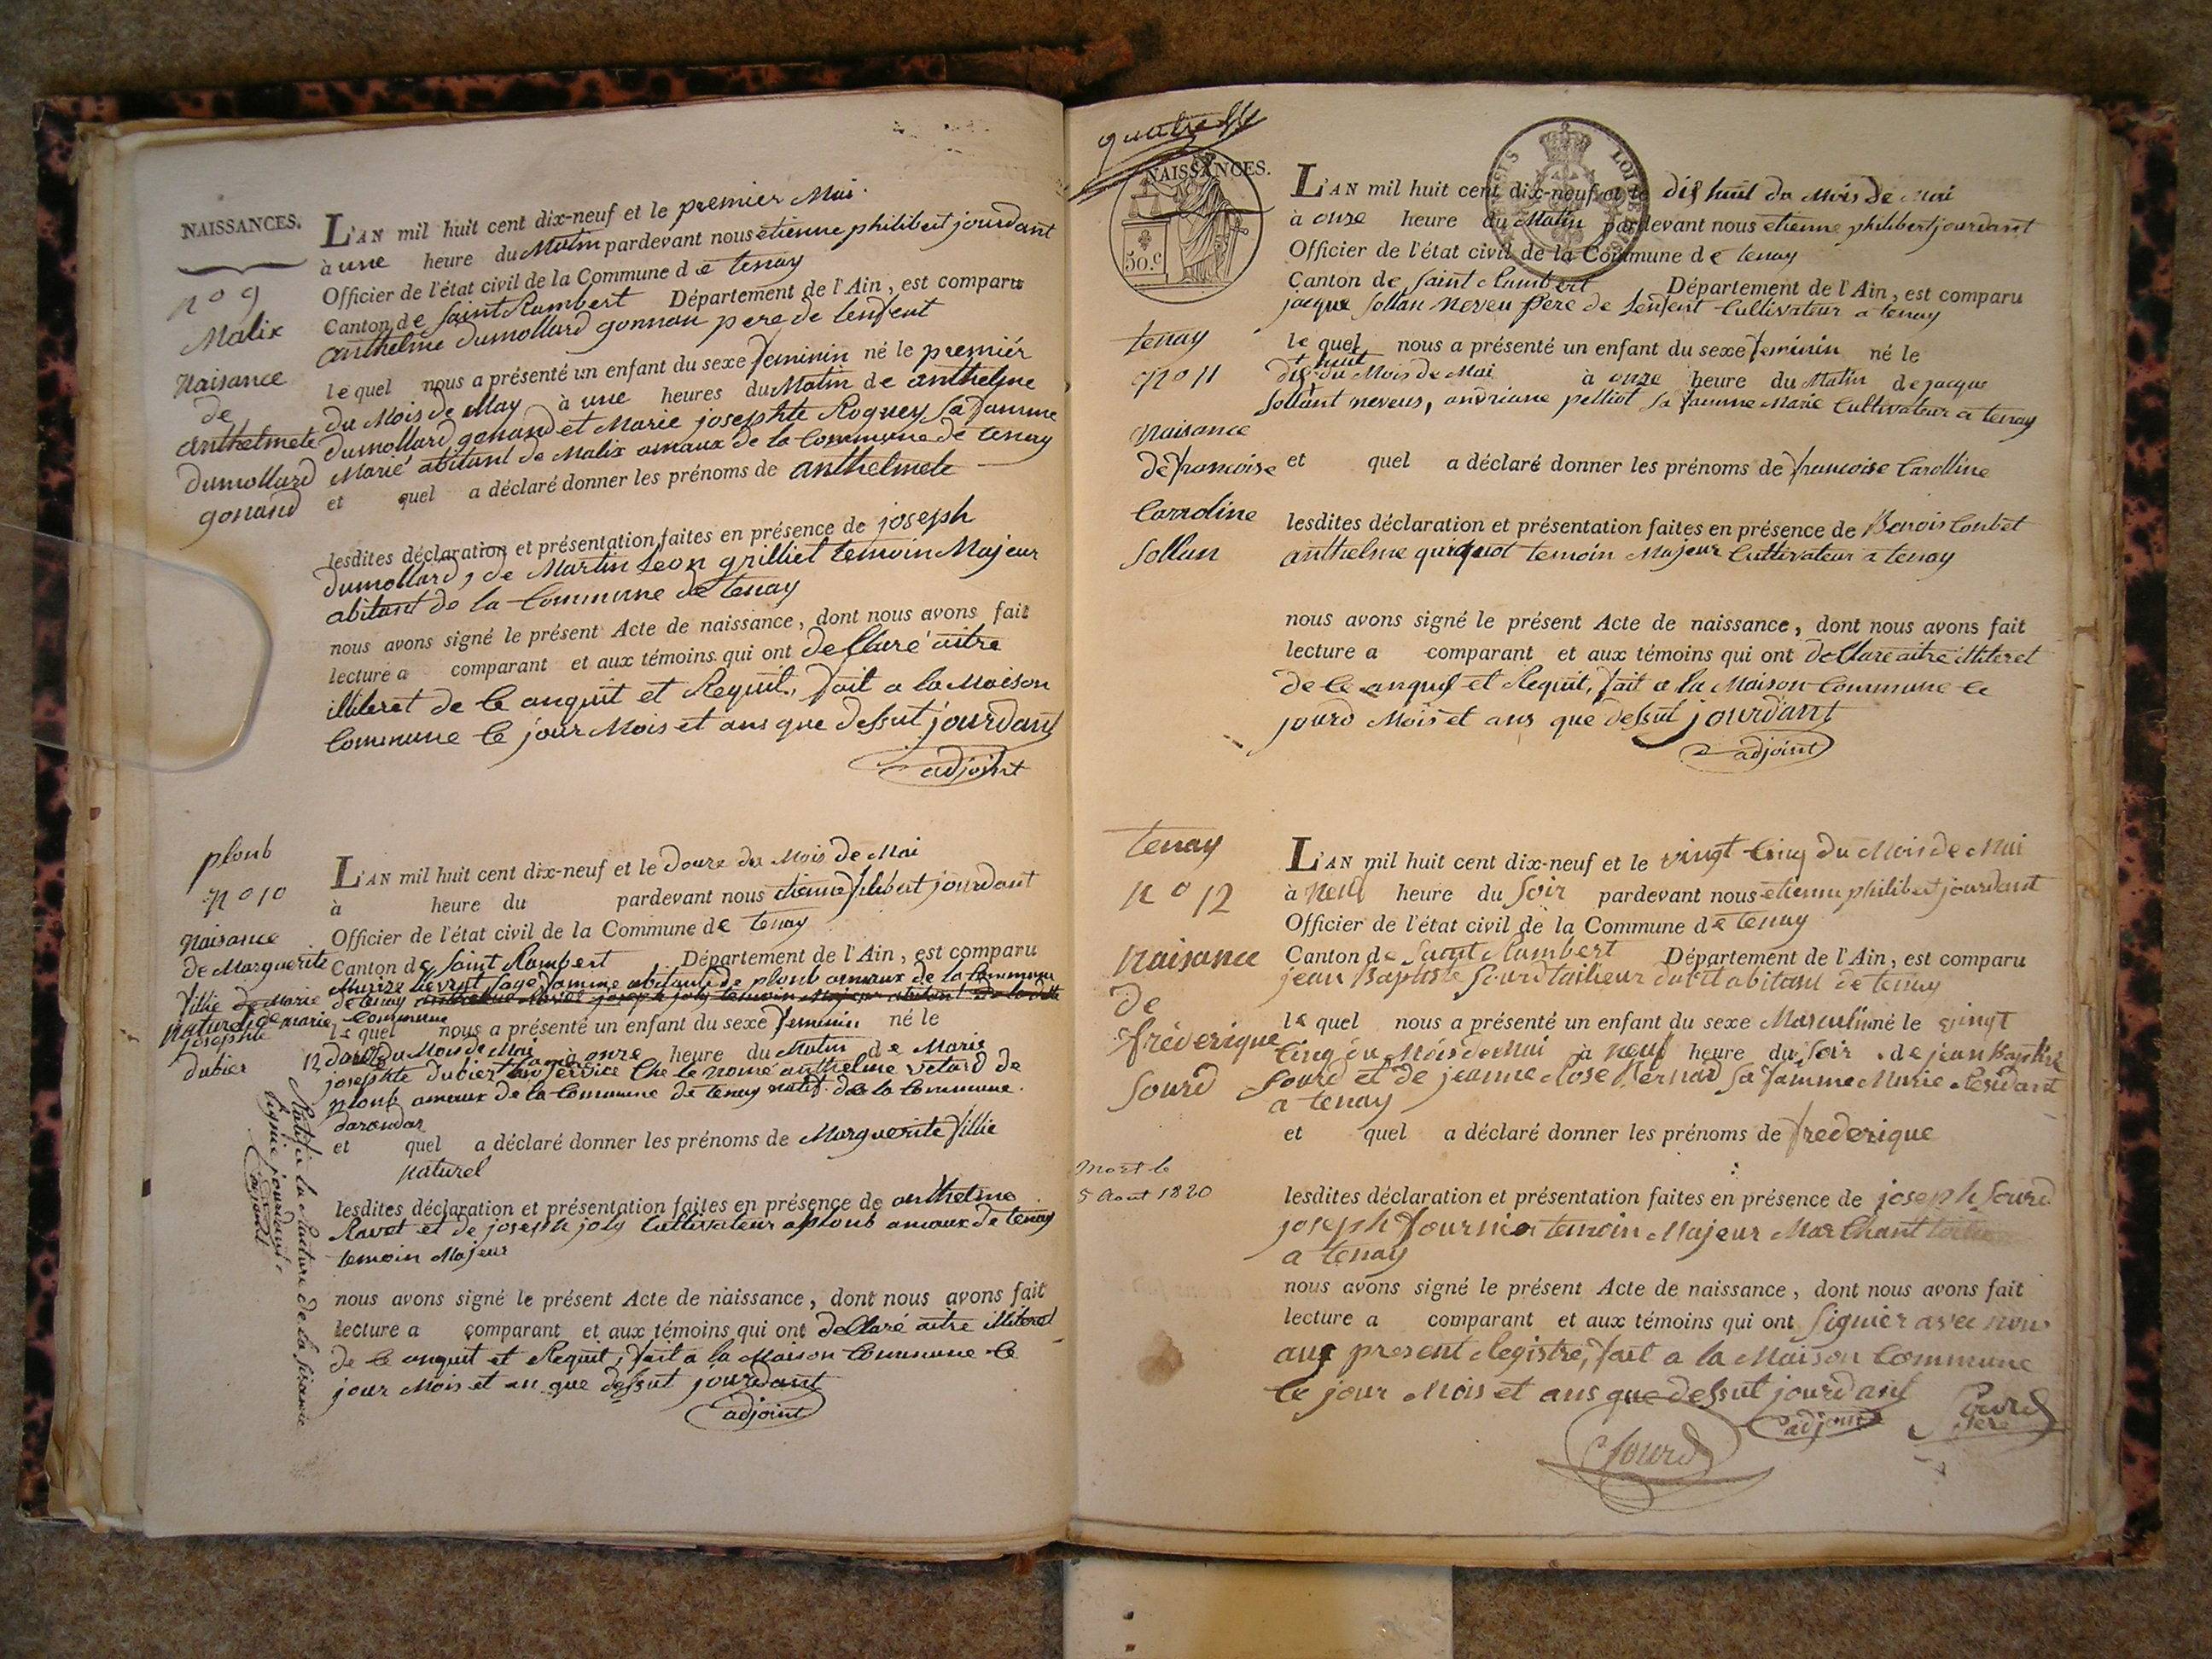 NAISSANCES.
n° 9
Malix
Naisance
de
anthelmete
dumollard
gonand
L'AN mil huit cent dix-neuf et le premier Mai
à une heure du Matin pardevant nous etienne philibert jourdant
Officier de l'état civil de la Commune de tenay
Canton de Saint Rambert Département de l'Ain, est comparu
anthelme dumollard gonnan pere de lenfent
lequel nous a présenté un enfant du sexe feminin né le premiér
du Mois de May à une heures du Matin de anthelme
dumollard gonand et Marie josephte Roguey sa famme
Marié abitant de Malix amaux de la Commune de tenay
et quel a déclaré donner les prénoms de anthelmete
lesdites déclaration et présentation faites en présence de joseph
dumollard, de Martin Leon grilliet temoin Majeur
abitant de la Commune de tenay
nous avons signé le présent Acte de naissance, dont nous avons fait
lecture a comparant et aux témoins qui ont decllaré aitre
illiteret de ce anquit et Requit, fait a la Maison
Commune ce jour Mois et ans que dessut jourdant
adjoint
plomb
n° 10
Naisance
de Marguerite
fillie de Marie
naturel de marie
josephte
dubier
L'AN mil huit cent dix-neuf et le douze du Mois de Mai
à heure du pardevant nous etienne filibert jourdant
Officier de l'état civil de la Commune de tenay
Canton de Saint Rambert Département de l'Ain, est comparu
sage famme abitante de plomb amaux de la Commune
de tenay joseph joly temoin Majeur abitant de la ditte
Commune
lequel nous a présenté un enfant du sexe feminin né le
12 douze du Mois de Mai à onze heure du Matin de Marie
josephte dubier en service che le nomé anthelme vetard de
plomb amaux de la Commune de tenay natif de la Commune
darandas
et quel a déclaré donner les prénoms de Marguerite fillie
naturel
lesdites déclaration et présentation faites en présence de anthelme
Ravet et de joseph joly Cultivateur a plomb amaux de tenay
temoin Majeur
nous avons signé le présent Acte de naissance, dont nous avons fait
lecture a comparant et aux témoins qui ont decllaré aitre illiteret
de ce anquit et Requit, fait a la Maison Commune ce
jour Mois et an que dessut jourdant
adjoint
Ratifié la Rature de la
ligne jourdant
adjoint
NAISSANCES.
50.c
tenay
n° 11
Naisance
de francoise
Carroline
Sollan
L'AN mil huit cent dix-neuf et le dis huit du Mois de Mai
à onze heure du Matin pardevant nous etienne philibert jourdant
Officier de l'état civil de la Commune de tenay
Canton de Saint Rambert Département de l'Ain, est comparu
jacque Sollan neveu pere de Lenfent Cultivateur a tenay
lequel nous a présenté un enfant du sexe feminin né le
dis huit du Mois de Mai à onze heure du Matin de jacque
Sollant neveus, andriane pelliot sa famme Marié Cultivateur a tenay
et quel a déclaré donner les prénoms de francoise Carolline
lesdites déclaration et présentation faites en présence de Benois Conbet
anthelme quiquot temoin Majeur Cultivateur a tenay
nous avons signé le présent Acte de naissance, dont nous avons fait
lecture a comparant et aux témoins qui ont decllaré aitre illiteret
de ce anquit et Requit, fait a la Maison Commune ce
jourd Mois et ans que dessut jourdant
adjoint
tenay
n° 12
Naisance
de
fréderique
Sourd
mort le
5 Aout 1820
L'AN mil huit cent dix-neuf et le vingt Cinq du Mois de Mai
à Neuf heure du Soir pardevant nous etienne philibert jourdant
Officier de l'état civil de la Commune de tenay
Canton de Saint Rambert Département de l'Ain, est comparu
jean Baptiste Sourd tailieur abitant de tenay
lequel nous a présenté un enfant du sexe Masculin né le vingt
Cinq du Mois de Mai à neuf heure du Soir de jean Baptiste
Sourd et de jeanne Rose Bernard sa famme Marie Residant
a tenay
et quel a déclaré donner les prénoms de frederique
lesdites déclaration et présentation faites en présence de joseph Sourd
joseph fournier temoin Majeur Marchant
a tenay
nous avons signé le présent Acte de naissance, dont nous avons fait
lecture a comparant et aux témoins qui ont signier avec nous
aux present Registre, fait a la Maison Commune
ce jour Mois et ans que dessut jourdant
adjoint
Sourd
pere
Sourd